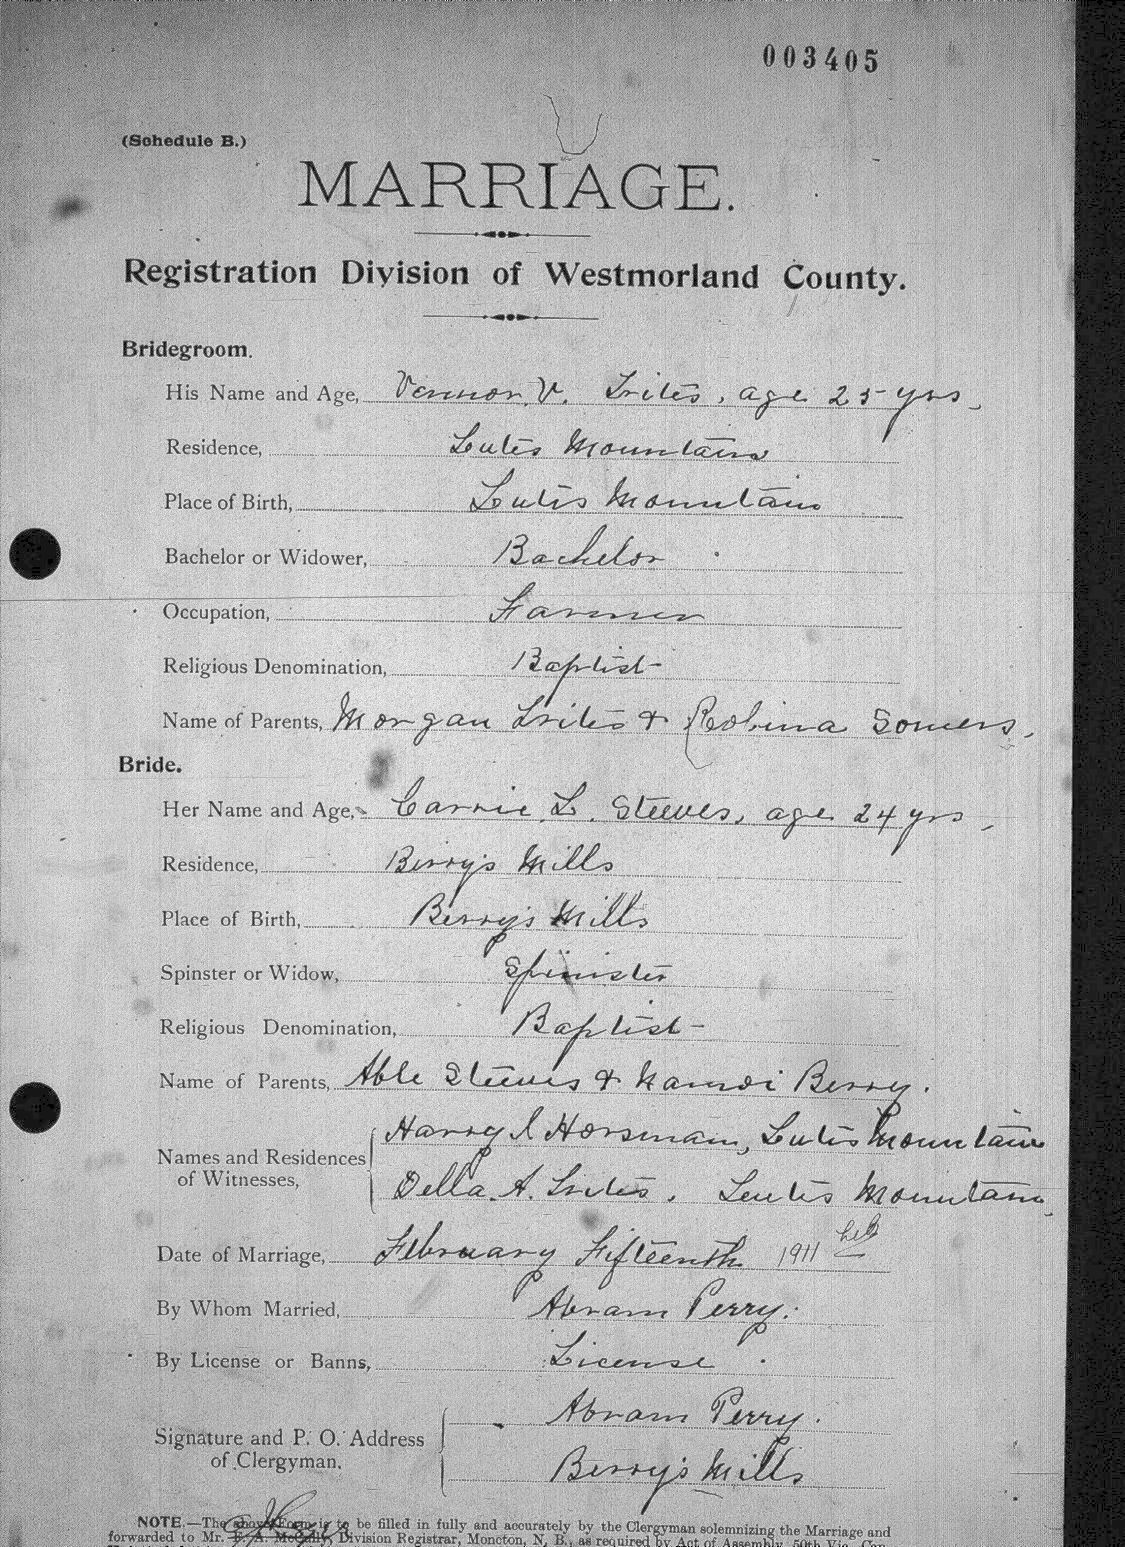 003405
(Schedule B.)
MARRIAGE.
Registration Division of Westmorland County.
Bridegroom.
His Name and Age, Vernon V. Trites, age 25 yrs
Residence, Lutes Mountain
Place of Birth, Lutes Mountain
Bachelor or Widower, Bachelor
Occupation, Farmer
Religious Denomination, Baptist
Name of Parents, Morgan Trites & Robina Somers,
Bride.
Her Name and Age, Carrie L. Steeves, age 24 yrs
Residence, Berry's Mills
Place of Birth, Berry's Mills
Spinster or Widow, Spinister
Religious Denomination, Baptist
Name of Parents, Able Steeves & Berry.
Harry Horsman, Lutes Mountain
Names and Residences
of Witnesses,
Della A. Trites. Lutes Mountain
Date of Marriage, February Fifteenth 1911
By Whom Married, Abram Perry.
By License or Banns, License
Abram Perry.
Signature and P. O. Address
of Clergyman.
Berry's Mills
NOTE.—The above Form is to be filled in fully and accurately by the Clergyman solemnizing the Marriage and
forwarded to Mr. Division Registrar, Moncton, N. B., as required by Act of Assembly, 50th Vic. Cap.